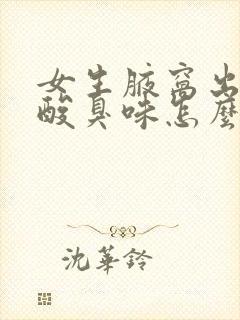 女生腋窝出
酸臭味怎麼
沈華鈴